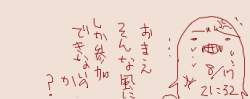 おまえ
そんな風に
しか参加
できないの
かい
?
8/17
21:32